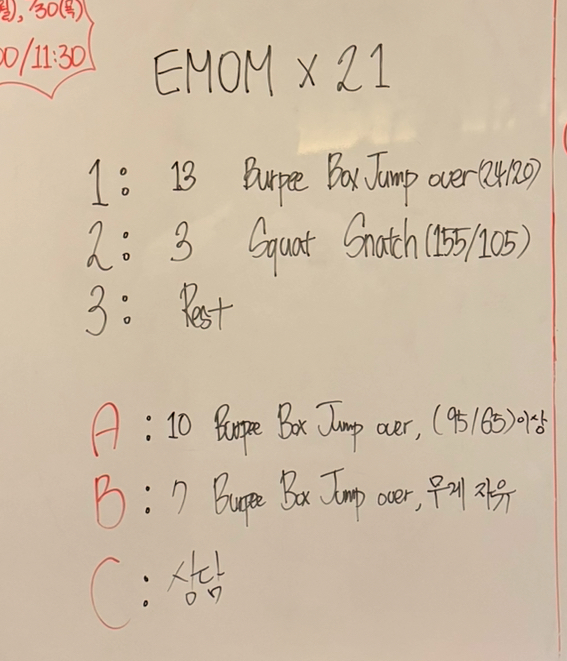 , 30(목)
00/11:30
EMOM x 21
1: 13 Burpee Box Jump over (24/20)
2: 3 Squat Snatch (155/105)
3: Rest
A: 10 Burpee Box Jump over, (95/65)이상
B: 7 Burpee Box Jump over, 무게 자유
C: 상담